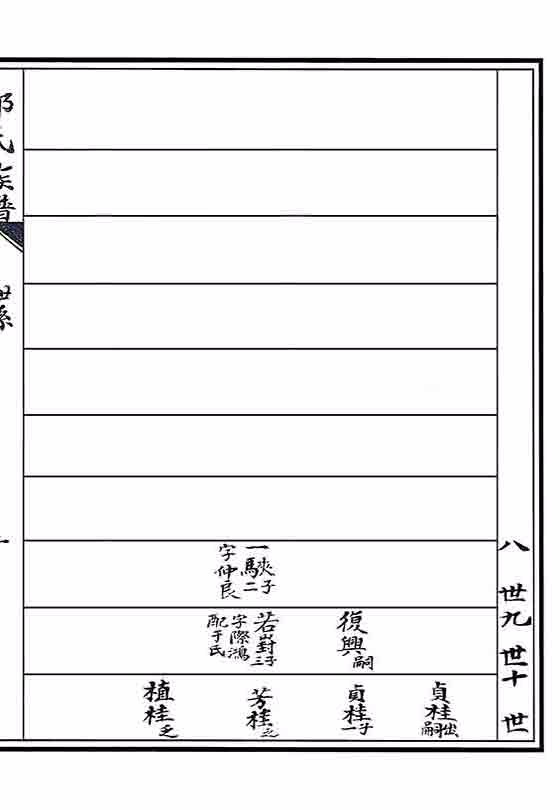 八世
九世
十世
一 子二
字仲良
復興嗣
若崶子三
字際鴻
配于氏
貞桂出嗣
貞桂子一
芳桂乏
植桂乏
氏族譜
世系